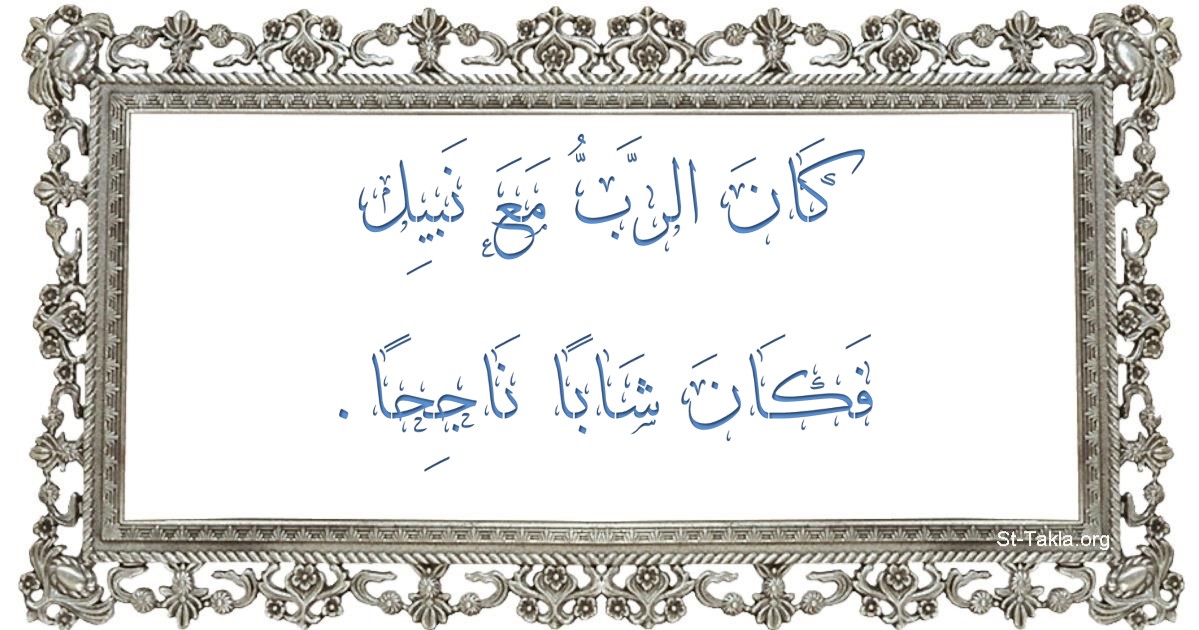 كَانَ الرَّبُّ مَعَ نَبِيلِ
فَكَانَ شَابًا نَاجِحًا .
St-Takla.org